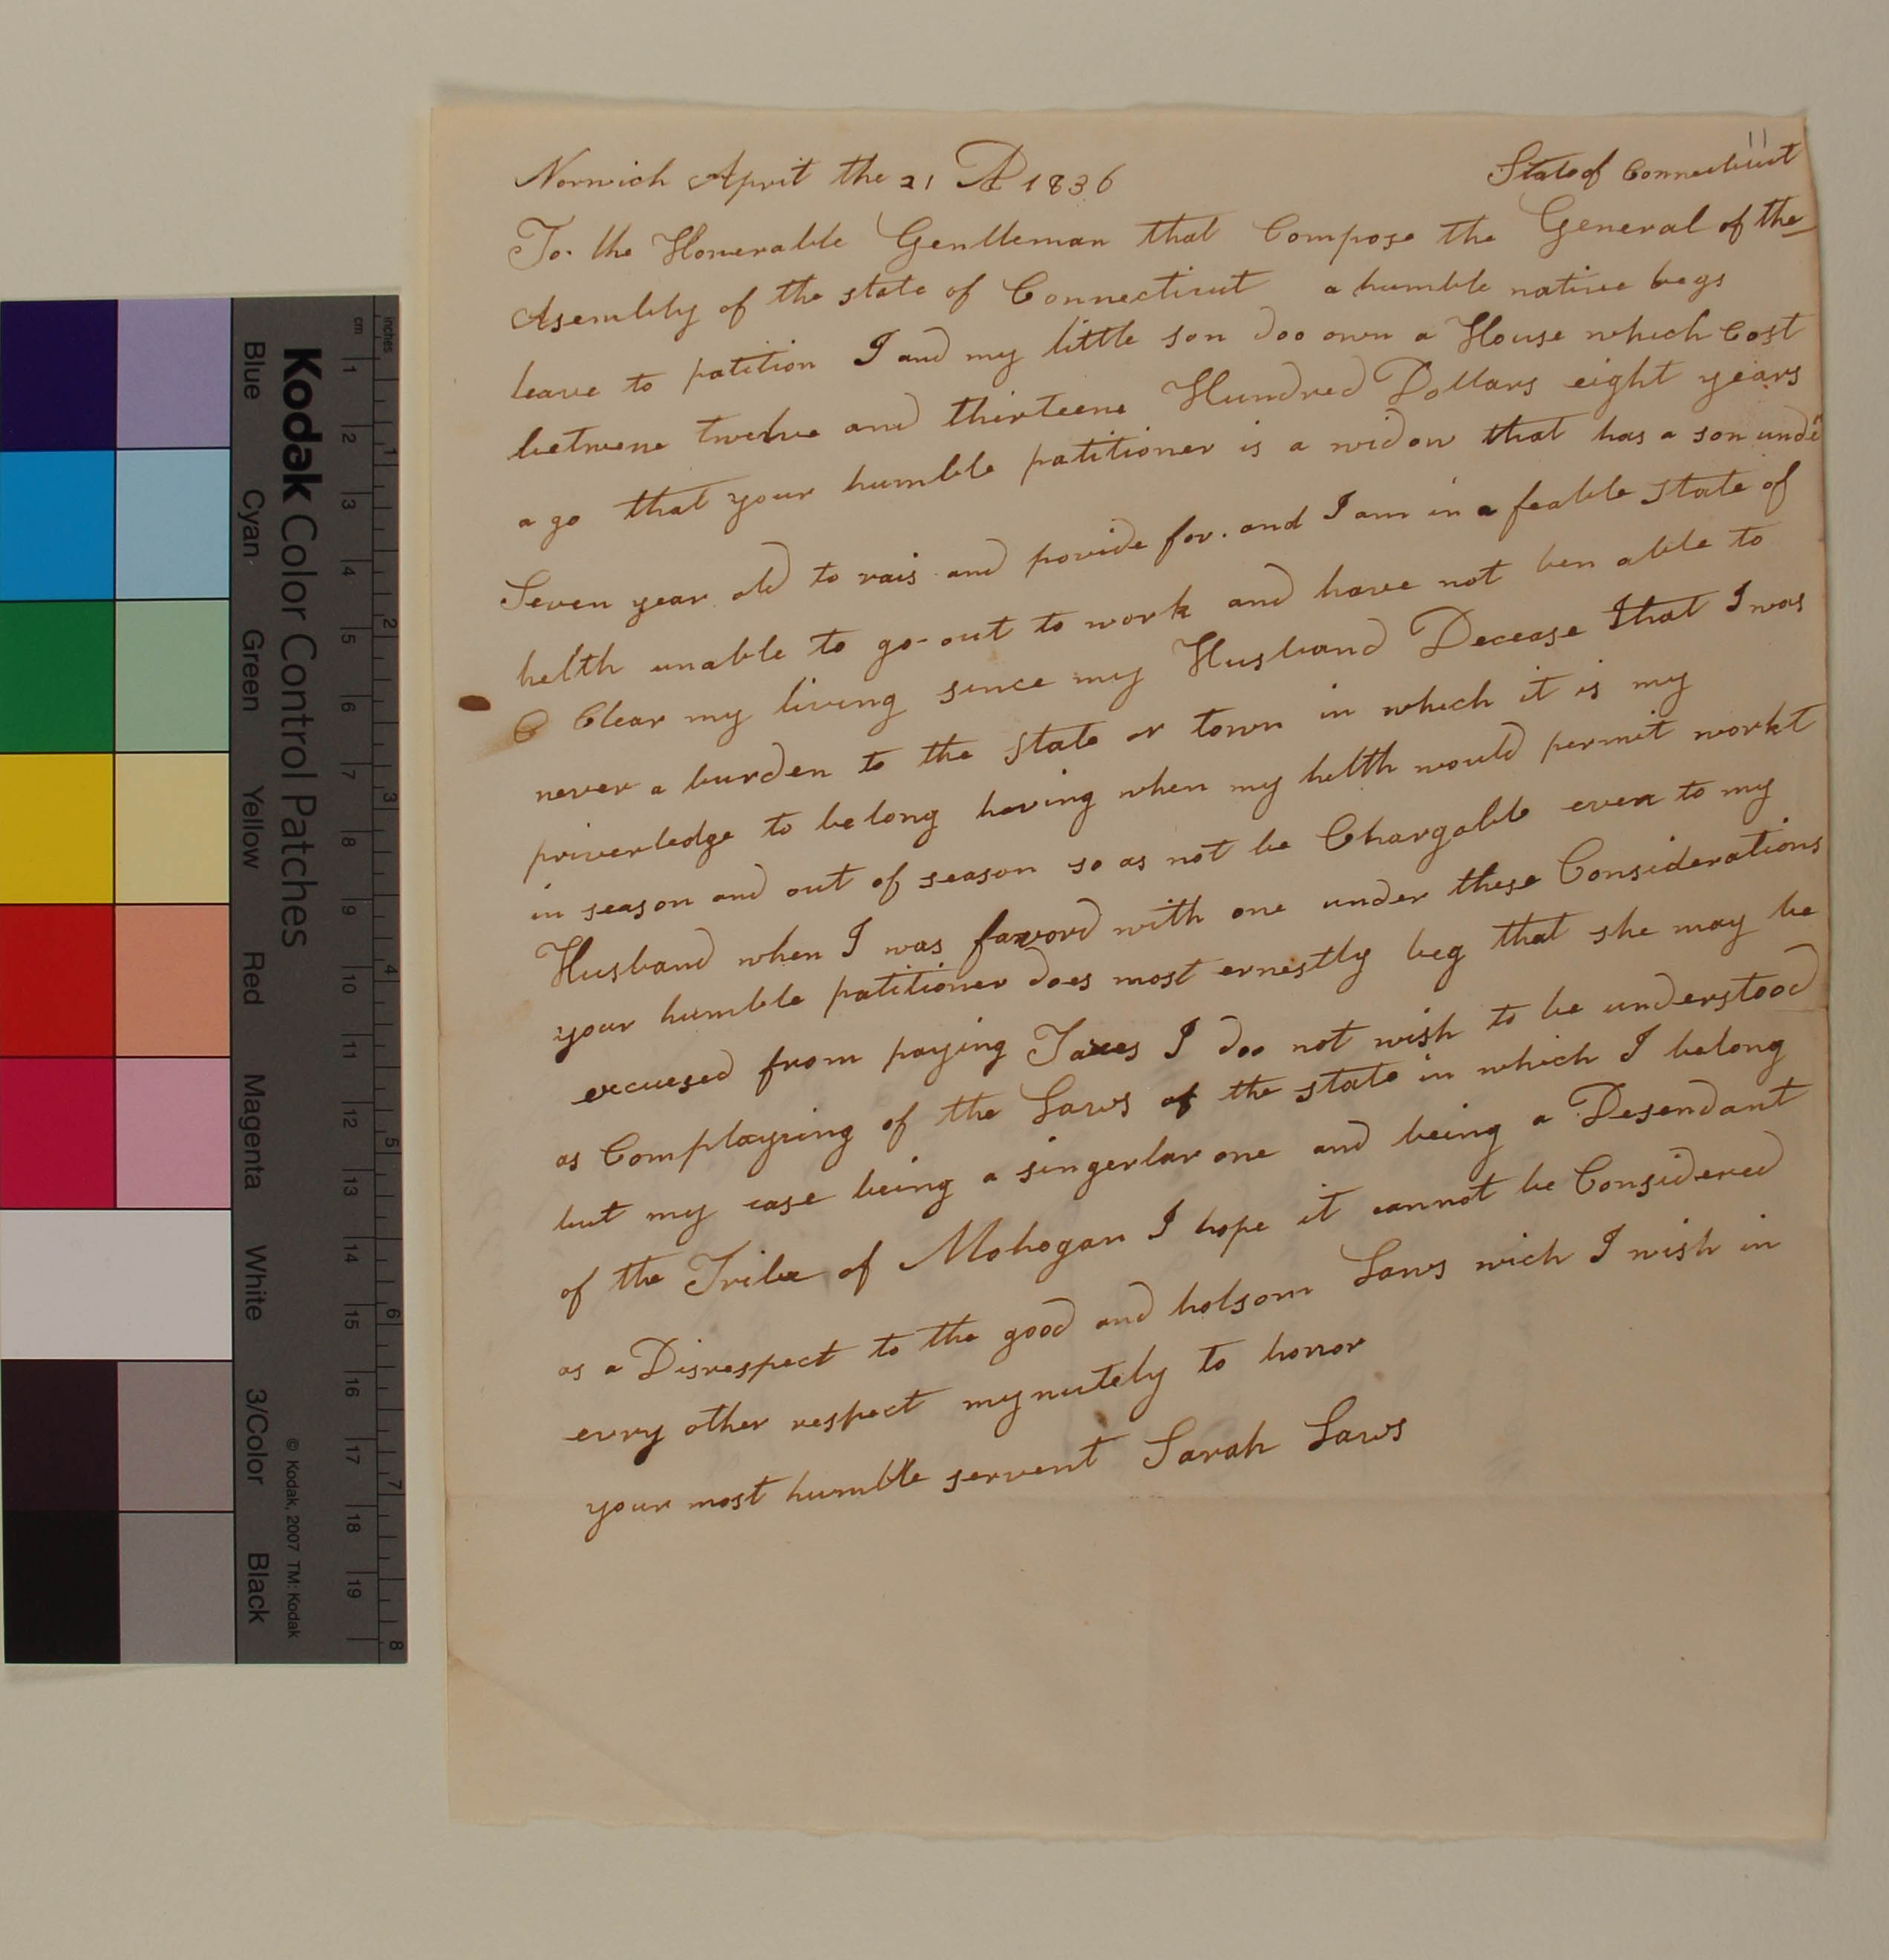 11
Norwich April the 21 AD 1836 State of Connecticut
To the Honerable Gentleman that Compose the General of the
Asembly of the state of Connecticut a humble native begs
leave to patition I and my little son doo own a House which Cost
betwene twelve and thirteene Hundred Dollars eight years
a go that your humble patitioner is a widow that has a son under
Seven year old to rais and provide for. and I am in a feable state of
helth unable to go-out to work and have not ben able to
C Clear my living since my Husband Decease that I was
never a burden to the state or town in which it is my
priverledge to belong having when my helth would permit workt
in season and out of season so as not be Chargable even to my
Husband when I was favord with one under these Considerations
your humble patitioner does most ernestly beg that she may be
excuesed from paying Taxes I doo not wish to be understood
as Complayning of the Laws of the state in which I belong
but my case being a singerlar one and being a Desendant
of the Tribe of Mohogan I hope it cannot be Considered
as a Disrespect to the good and holsom Laws wich I wish in
evry other respect mynutely to honor
your most humble servent Sarah Laws
Kodak Color Control Patches
© Kodak, 2007 TM: Kodak
Blue Cyan Green Yellow Red Magenta White 3/Color Black
cm 1 2 3 4 5 6 7 8 9 10 11 12 13 14 15 16 17 18 19
inches 1 2 3 4 5 6 7 8